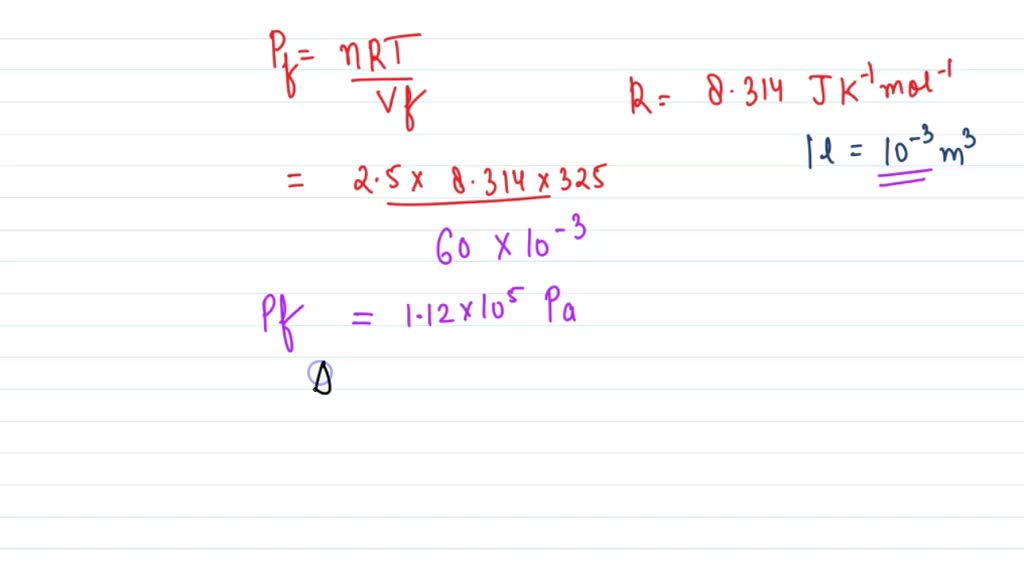 Pf = nRT
Vf
R = 8.314 JK⁻¹mol⁻¹
1l = 10⁻³ m³
= 2.5 x 8.314 x 325
60 x 10⁻³
Pf = 1.12 x 10⁵ Pa
Δ